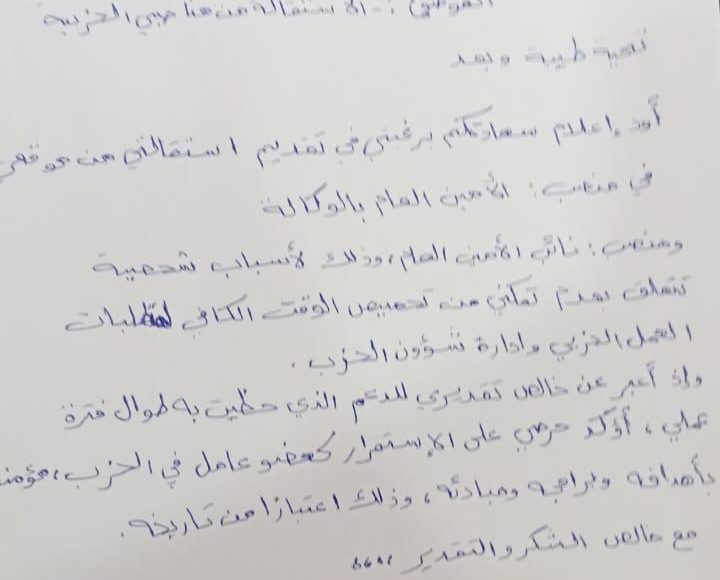 الموضوع :- الاستقالة من مناصبي الحزبية
تحية طيبة وبعد
أود إعلام سعادتكم برغبتي في تقديم استقالتي من موقعي
في منصب : الأمين العام بالوكالة
ومنصب : نائب الأمين العام ، وذلك لأسباب شخصية
تتعلق بعدم تمكني من تخصيص الوقت الكافي لمتطلبات
العمل الحزبي وادارة شؤون الحزب .
وإذ أعبر عن خالص تقديري للدعم الذي حظيت به طوال فترة
عملي ، أؤكد حرصي على الإستمرار كعضو عامل في الحزب ، مؤمنا
بأهدافه وبرامجه ومبادئه ، وذلك اعتبارا من تاريخه .
مع خالص الشكر والتقدير ،،،،